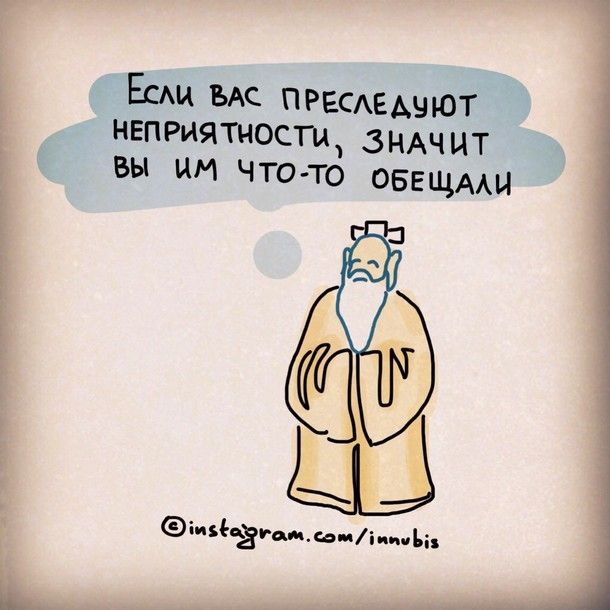 Если вас преследуют
неприятности, значит
вы им что-то обещали
©instagram.com/innubis